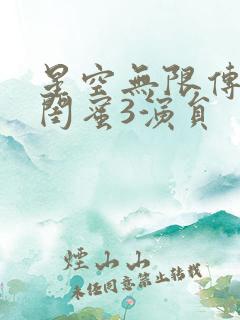 星空無限傳
閨蜜3演員
煙山山
未经同意禁止转载